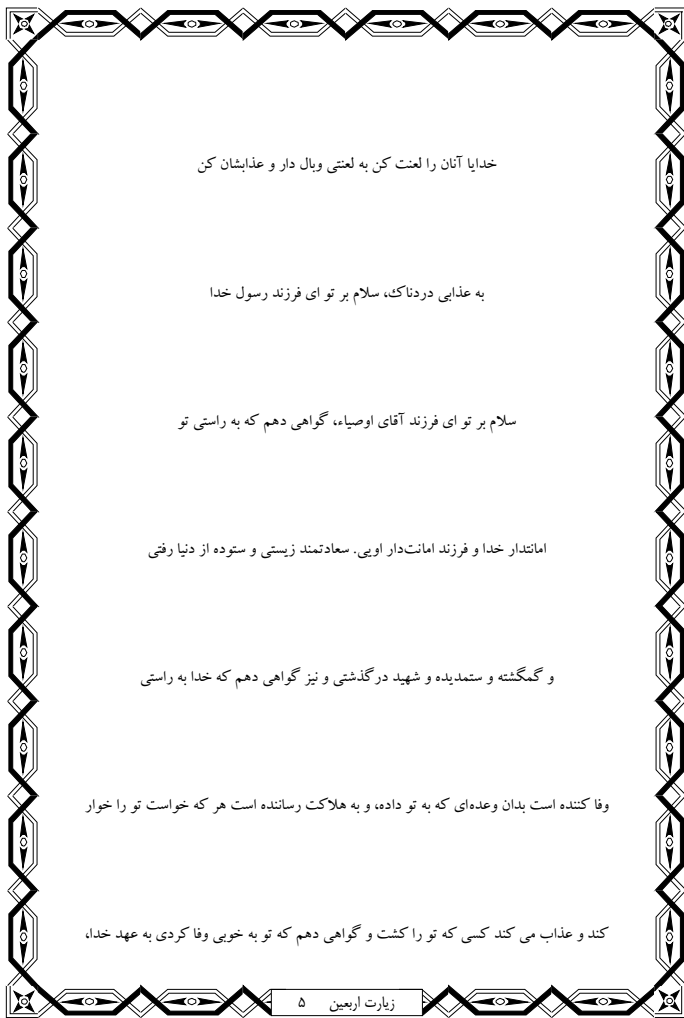 خدایا آنان را لعنت کن به لعنتی وبال دار و عذابشان کن
به عذابی دردناك، سلام بر تو ای فرزند رسول خدا
سلام بر تو ای فرزند آقای اوصیاء، گواهی دهم که به راستی تو
امانتدار خدا و فرزند امانت‌دار اویی. سعادتمند زیستی و ستوده از دنیا رفتی
و گمگشته و ستمدیده و شهید درگذشتی و نیز گواهی دهم که خدا به راستی
وفا کننده است بدان وعده‌ای که به تو داده، و به هلاکت رساننده است هر که خواست تو را خوار
کند و عذاب می کند کسی که تو را کشت و گواهی دهم که تو به خوبی وفا کردی به عهد خدا،
زیارت اربعین ۵